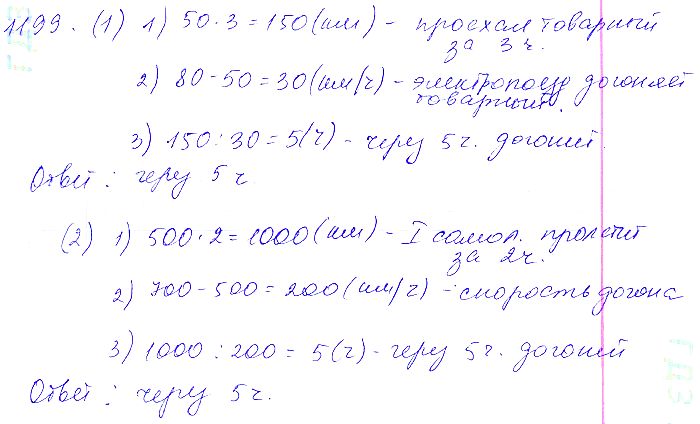 1199. (1) 1) 50·3=150(км) - проехал товарный
за 3 ч.
2) 80-50=30(км/ч) - электропоезд догоняет
товарный.
3) 150:30=5(ч) - через 5 ч. догонит.
Ответ: через 5 ч
(2) 1) 500·2=1000(км) - I самол. пролетит
за 2ч.
2) 700-500=200(км/ч) - скорость догона
3) 1000:200=5(ч) - через 5 ч. догонит
Ответ: через 5 ч.